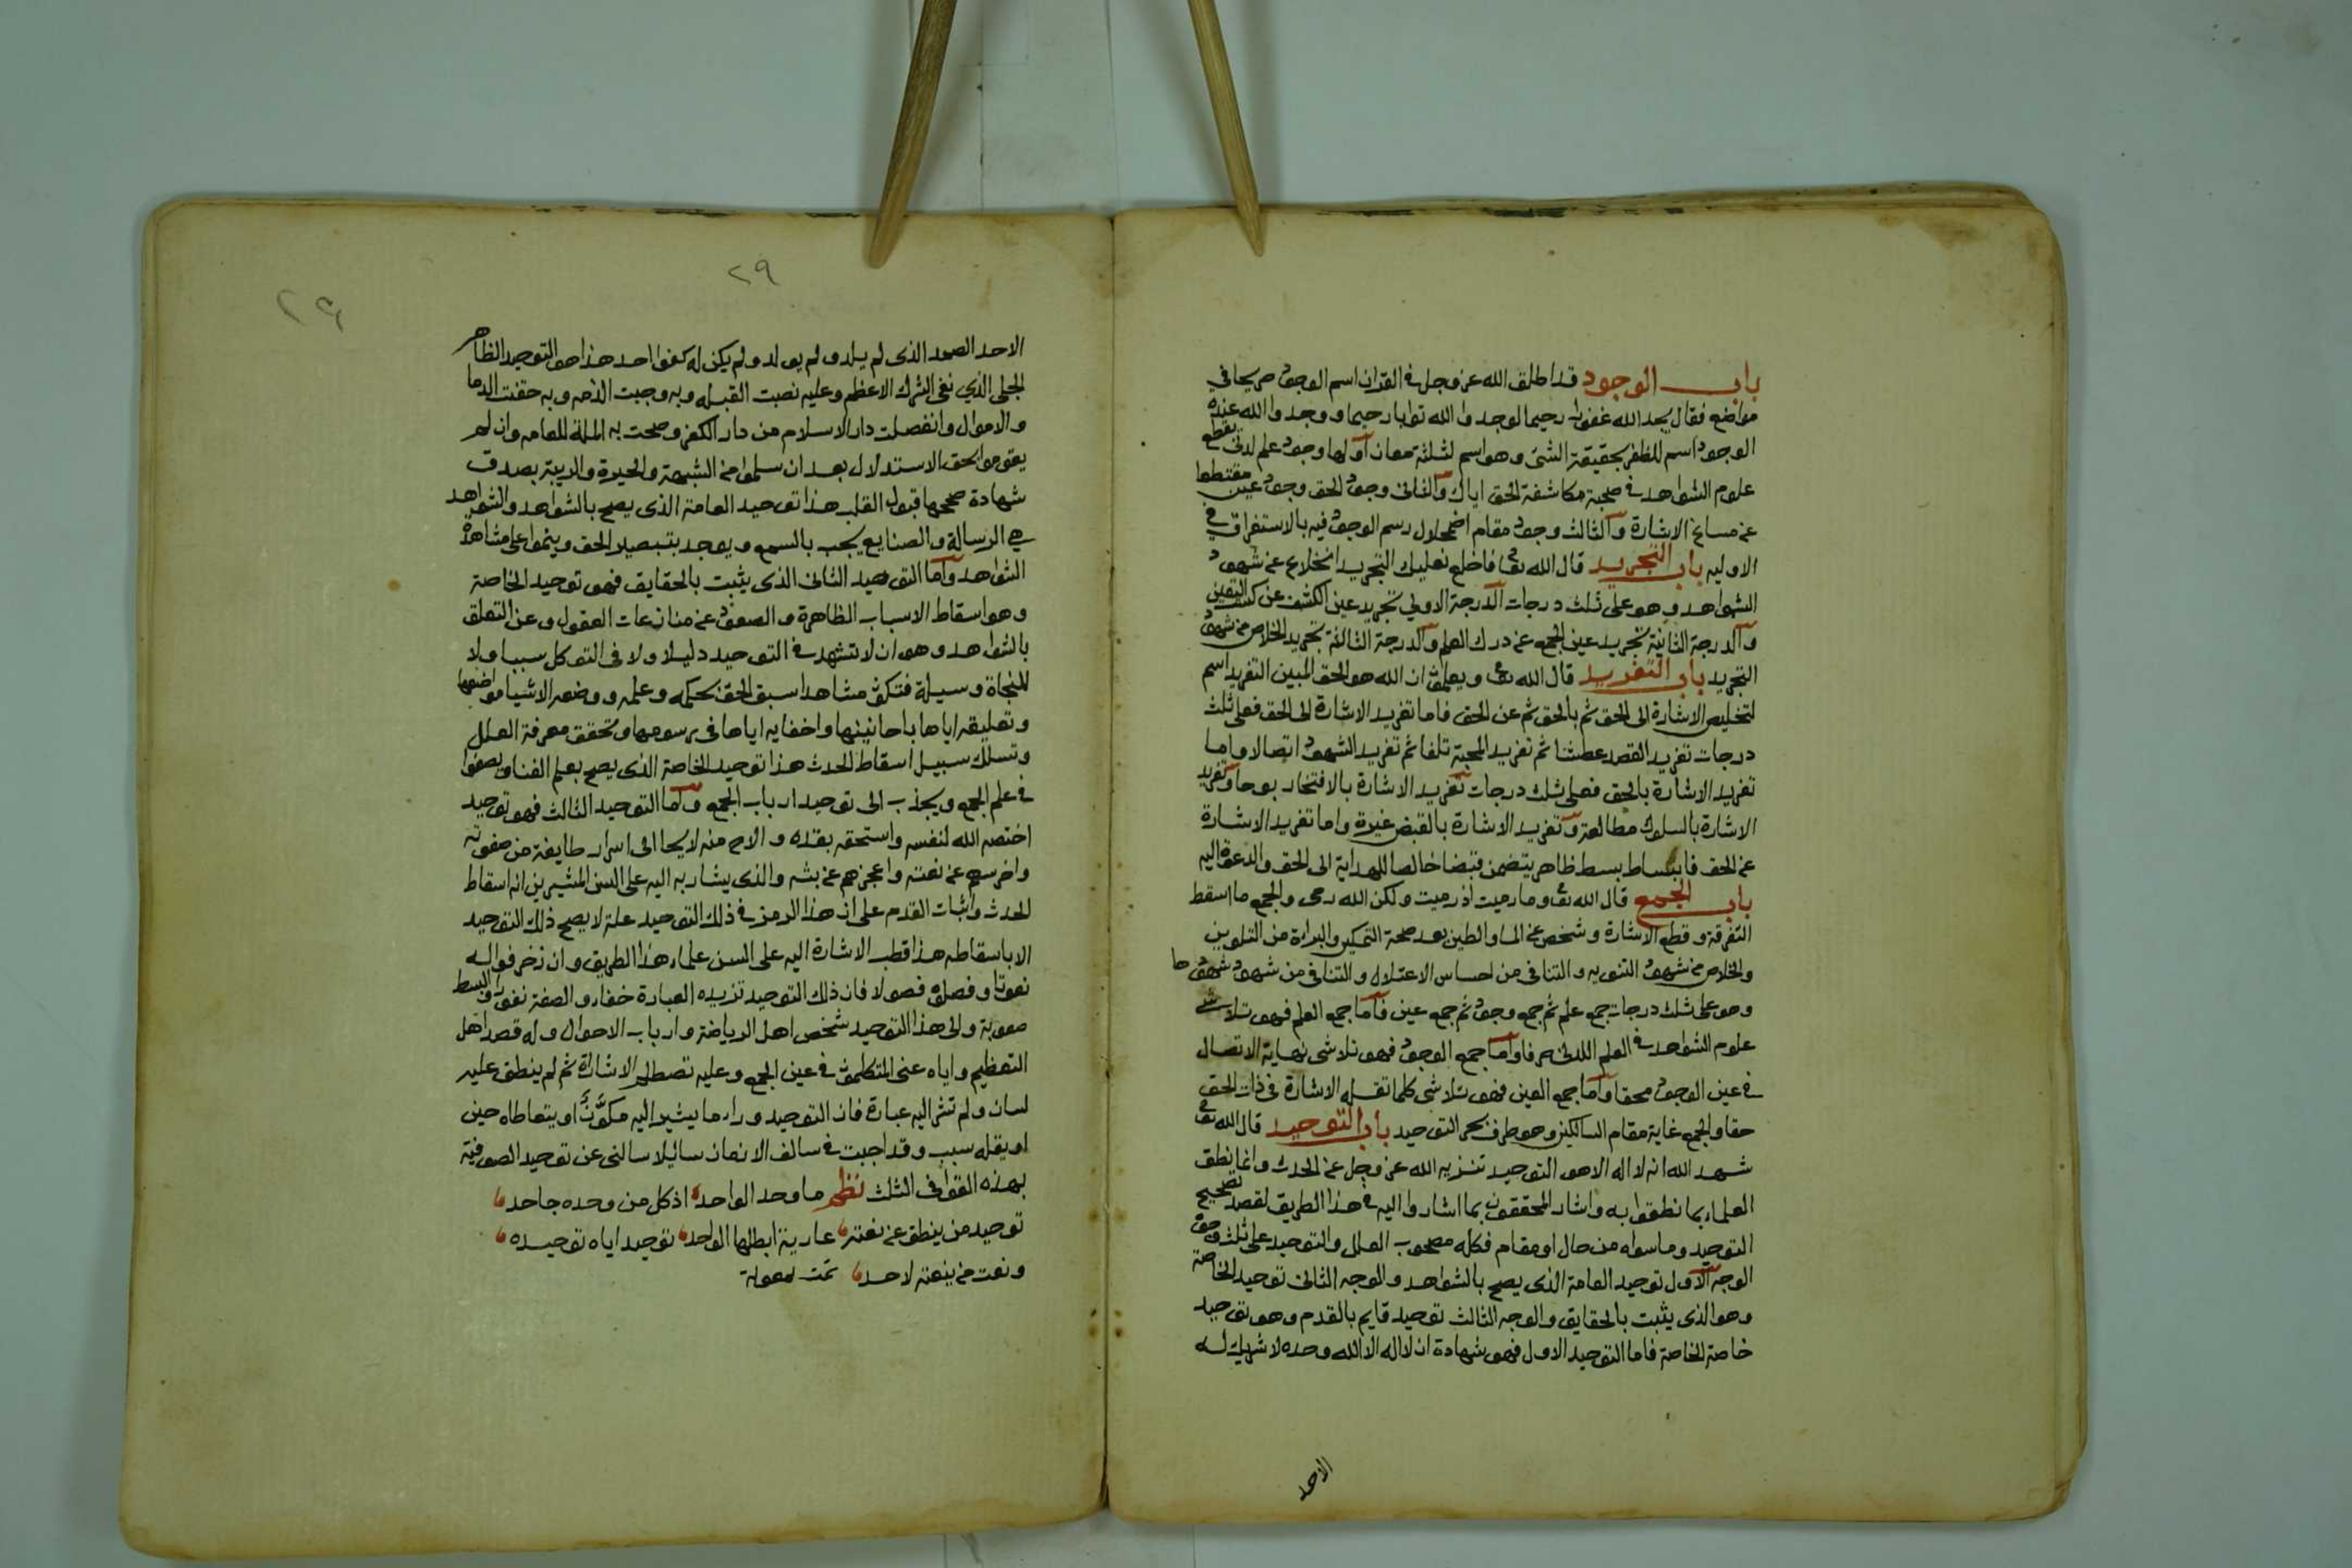 باب الوجود قد اطلق الله عز وجل في القران اسم الوجود صريحا في
مواضع فقال يجد الله غفورا رحيما لوجدوا الله توابا رحيما ووجد الله عنده
الوجود اسم للظفر بحقيقة الشئ وهو اسم لثلثة معان اولها وجود علم لدني يقطع
علوم الشواهد في صحبة مكاشفة الحق اياك والثاني وجود الحق وجود عين مقتطعا
عن مساغ الاشارة والثالث وجود مقام اضمحلال رسم الوجود فيه بالاستغراق في
الاوليه باب التجريد قال الله تعا فاخلع نعليك التجريد انخلاع عن شهود
الشواهد وهو على ثلث درجات الدرجة الاولي تجريد عين الكشف عن كسب اليقين
والدرجة الثانية تجريد عين الجمع عن درك العلم والدرجة الثالثة تجريد الخلاص من شهود
التجريد باب التفريد قال الله تعا ويعلمون ان الله هو الحق المبين التفريد اسم
لتخليص الاشارة الى الحق ثم بالحق ثم عن الحق فاما تفريد الاشارة الى الحق فعلى ثلث
درجات تفريد القصد عطشا ثم تفريد المحبة تلفا ثم تفريد الشهود اتصالا واما
تفريد الاشارة بالحق فعلى ثلث درجات تفريد الاشارة بالافتخار بوحا وتفريد
الاشارة بالسلوك مطالعة وتفريد الاشارة بالقبض غيرة واما تفريد الاشارة
عن الحق فانبساط ببسط ظاهر يتضمن قبضا خالصا للهداية الى الحق والدعوة اليه
باب الجمع قال الله تعا وما رميت اذ رميت ولكن الله رمى والجمع ما اسقط
التفرقة وقطع الاشارة وشخص عن الماء والطين بعد صحة التمكين والبراءة من التلوين
والخلاص من شهود الثنويه والتنافي من احساس الاعتلال والتنافي من شهود شهودها
وهو على ثلث درجات جمع علم ثم جمع وجود ثم جمع عين فاما جمع العلم فهو تلاشي
علوم الشواهد في العلم اللدني صرفا واما جمع الوجود فهو تلاشي نهاية الاتصال
في عين الوجود محقا واما جمع العين فهو تلاشي كلما تقله الاشارة في ذات الحق
حقا والجمع غاية مقام السالكين وهو طرف بحر التوحيد باب التوحيد قال الله تعا
شهد الله انه لا اله الا هو التوحيد تنزيه الله عز وجل عن الحدث وانما نطق
العلماء بما نطقوا به واشار المحققون بما اشاروا اليه في هذا الطريق لقصد تصحيح
التوحيد وما سواه من حال او مقام فكله مصحوب العلل والتوحيد على ثلث وجوه
الوجه الاول توحيد العامة الذي يصح بالشواهد والوجه الثاني توحيد الخاصة
وهو الذي يثبت بالحقايق والوجه الثالث توحيد قايم بالقدم وهو توحيد
خاصة الخاصة فاما التوحيد الاول فهو شهادة ان لا اله الا الله وحده لا شريك له
الاحد
٢٩
٢٩
الاحد الصمد الذي لم يلد ولم يولد ولم يكن له كفوا احد هذا هو التوحيد الظاهر
الجلي الذي نفى الشرك الاعظم وعليه نصبت القبله وبه وجبت الذمه وبه حقنت الدما
والاموال وانفصلت دار الاسلام من دار الكفر وصحت به الملة للعامه وان لم
يقوموا بحق الاستدلال بعد ان سلموا من الشبهة والحيرة والريبة بصدق
شهادة صححها قبول القلب هذا توحيد العامة الذي يصح بالشواهد والشواهد
هي الرسالة والصنايع يجب بالسمع ويوجد بتبصير الحق وينموا على مشاهدة
الشواهد واما التوحيد الثاني الذي يثبت بالحقايق فهو توحيد الخاصة
وهو اسقاط الاسباب الظاهرة والصعود عن منازعات العقول وعن التعلق
بالشواهد وهو ان لا تشهد في التوحيد دليلا ولا في التوكل سببا ولا
للنجاة وسيلة فتكون مشاهدا سبق الحق بحكمه وعلمه ووضعه الاشيا مواضعها
وتعليقه اياها باحايينها واخفايه اياها في رسومها وتحقق معرفة العلل
وتسلك سبيل اسقاط الحدث هذا توحيد الخاصة الذي يصح بعلم الفنا ويصفوا
في علم الجمع ويجذب الى توحيد ارباب الجمع واما التوحيد الثالث فهو توحيد
اختصه الله لنفسه واستحقه بقدره والاح منه لايحا الى اسرار طايفة من صفوته
واخرسهم عن نعته واعجزهم عن بثه والذي يشار به اليه على السن المشيرين انه اسقاط
الحدث واثبات القدم على ان هذا الرمز في ذلك التوحيد علة لا يصح ذلك التوحيد
الا باسقاطه هذا قطب الاشارة اليه على السن علماء هذا الطريق وان زخرفوا له
نعوتا وفصلوه فصولا فان ذلك التوحيد تزيده العبارة خفاء والصفة نفورا والبسط
صعوبة والى هذا التوحيد شخص اهل الرياضة وارباب الاحوال وله قصد اهل
التعظيم واياه عنى المتكلمون في عين الجمع وعليه تصطلم الاشارة ثم لم ينطق عليه
لسان ولم تشر اليه عبارة فان التوحيد وراء ما يشير اليه مكون او يتعاطاه حين
او يقله سبب وقد اجبت في سالف الازمان سائلا سالني عن توحيد الصوفية
بهذه القوافي الثلث نظم ما وحد الواحد اذ كل من وحده جاحد
توحيد من ينطق عن نعته عارية ابطلها الواحد توحيد اياه توحيده
ونعت من ينعته لاحد تمت